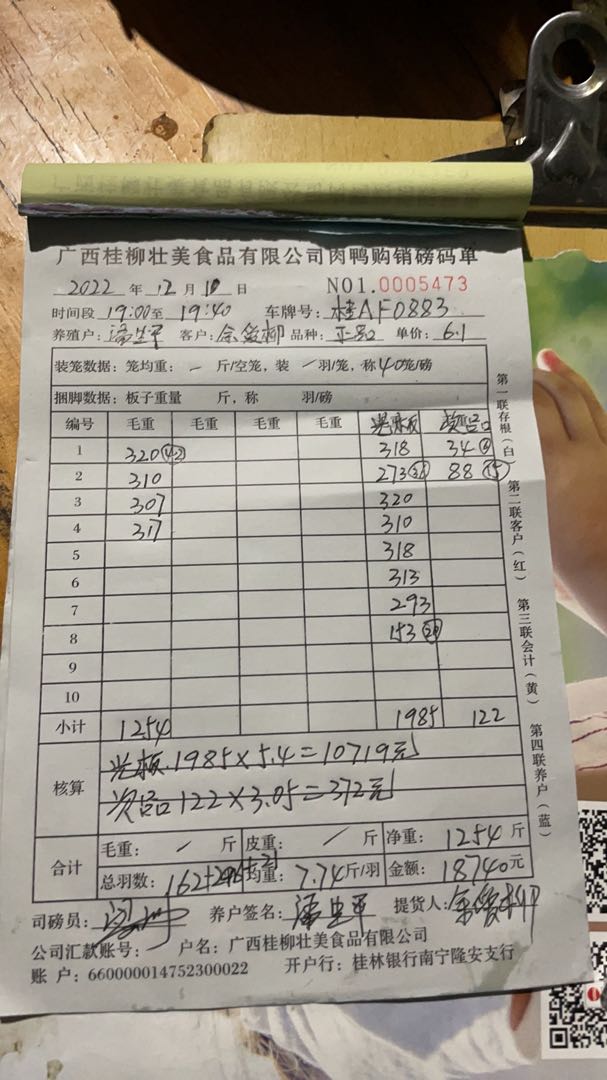 广西桂柳壮美食品有限公司肉鸭购销磅码单
2022 年 12 月 10 日 NO1.0005473
时间段 19:00至 19:40 车牌号:桂AF0883
养殖户: 客户: 品种:正品 单价:6.1
装笼数据:笼均重: 一 斤/空笼,装 一 羽/笼,称40笼/磅
捆脚数据:板子重量 斤,称 羽/磅
编号 毛重 毛重 毛重 毛重 光板 次品
1 320 42 318 34 6
2 310 273 88 15
3 307 320
4 317 310
5 318
6 313
7 293
8 153 20
9
10
小计 1254 1985 122
核算 光板 1985×5.4=10719元
次品 122×3.05=372元
合计 毛重: / 斤 皮重: / 斤 净重: 1254 斤
总羽数: 162+ +21 均重: 7.74斤/羽 金额: 18740元
司磅员: 养户签名: 提货人:
公司汇款账号: 户名:广西桂柳壮美食品有限公司
账 户:660000014752300022 开户行:桂林银行南宁隆安支行
第一联存根(白)
第二联客户(红)
第三联会计(黄)
第四联养户(蓝)